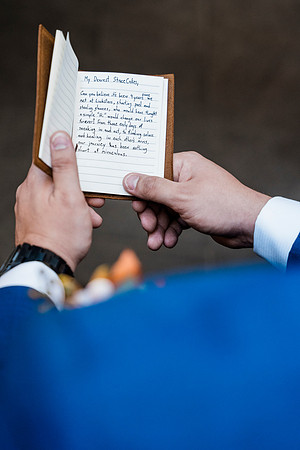 My Dearest StaceCakes,
Can you believe it's been 9 years since we
met at Cadillacs, sharing pool and
stealing glances, who would have thought
a simple "Hi" would change our lives
forever? From those early days of
sneaking in and out, to finding solace
and healing in each other's arms,
our journey has been nothing
short of miraculous.